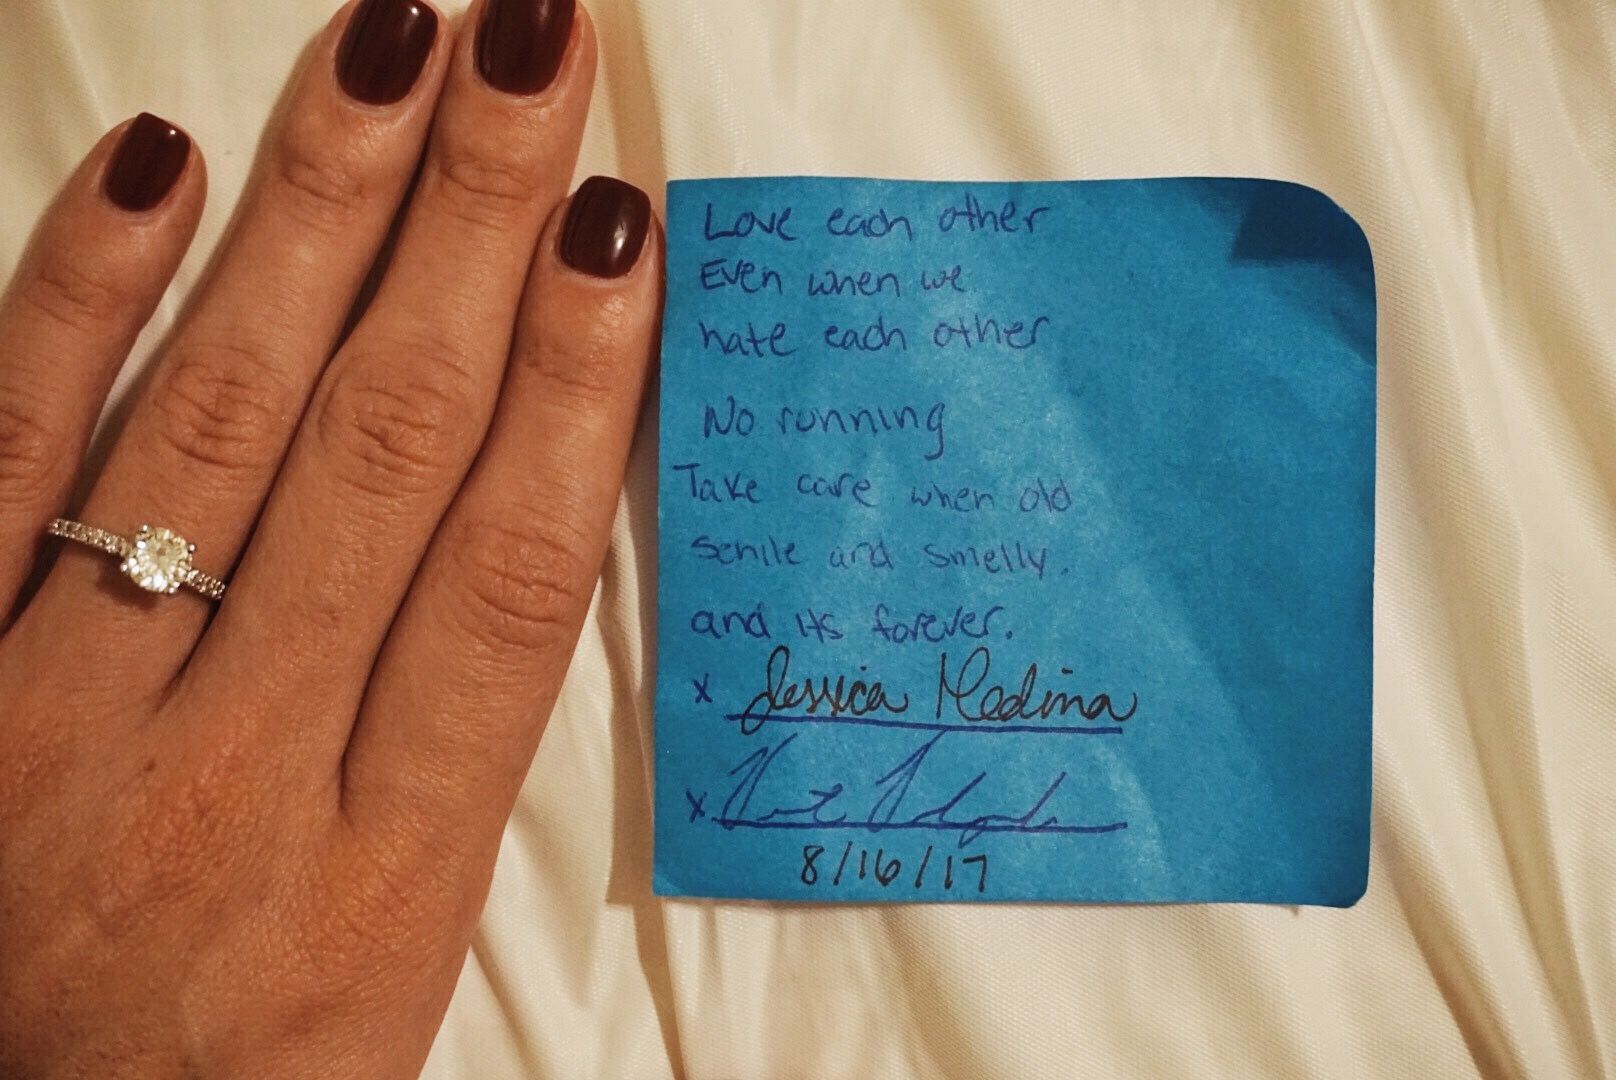 Love each other
Even when we
hate each other
No running
Take care when old
senile and smelly.
and its forever.
x Jessica Medina
x
8/16/17